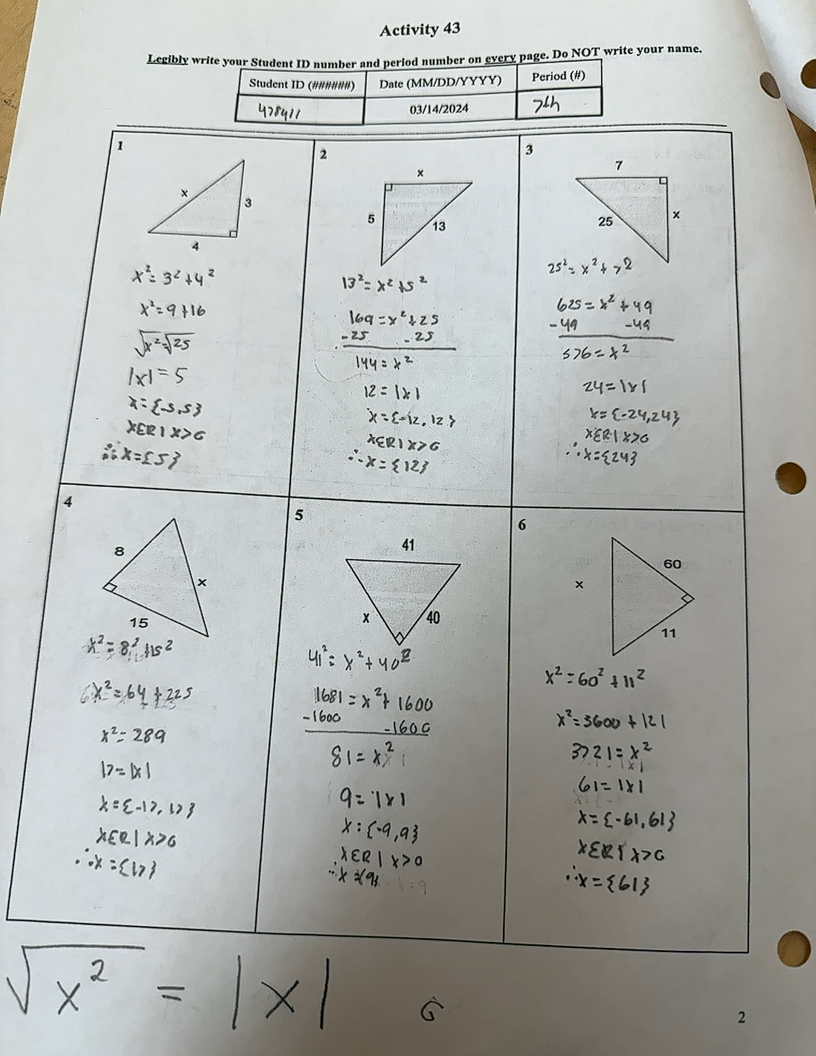 Activity 43
Legibly write your Student ID number and period number on every page. Do NOT write your name.
Student ID (######) Date (MM/DD/YYYY) Period (#)
478411 03/14/2024 7th
1
x
3
4
x²=3²+4²
x²=9+16
√x²=√25
|x|=5
x={-5,5}
xεR|x>0
∴x={5}
2
x
5
13
13²=x²+5²
169=x²+25
-25 -25
144=x²
12=|x|
x={-12,12}
xεR|x>0
∴x={12}
3
7
25
x
25²=x²+7²
625=x²+49
-49 -49
576=x²
24=|x|
x={-24,24}
xεR|x>0
∴x={24}
4
8
x
15
x²=8²+15²
x²=64+225
x²=289
17=|x|
x={-17,17}
xεR|x>0
∴x={17}
5
41
x
40
41²=x²+40²
1681=x²+1600
-1600 -1600
81=x²
9=|x|
x={-9,9}
xεR|x>0
∴x={9}
6
60
x
11
x²=60²+11²
x²=3600+121
3721=x²
61=|x|
x={-61,61}
xεR|x>0
∴x={61}
√x² = |x|
G
2